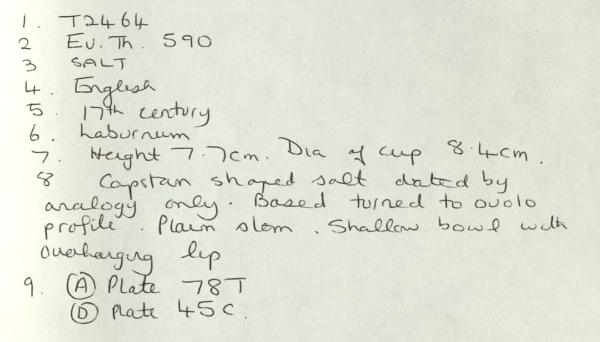 1. T2464
2 Ev. Th. 590
3 SALT
4. English
5. 17th century
6. Laburnum
7. Height 7.7cm. Dia of cup 8.4cm.
8 Capstan shaped salt dated by
analogy only. Based turned to ovolo
profile. Plain stem. Shallow bowl with
overhanging lip
9. (A) Plate 78T
(D) Plate 45C.